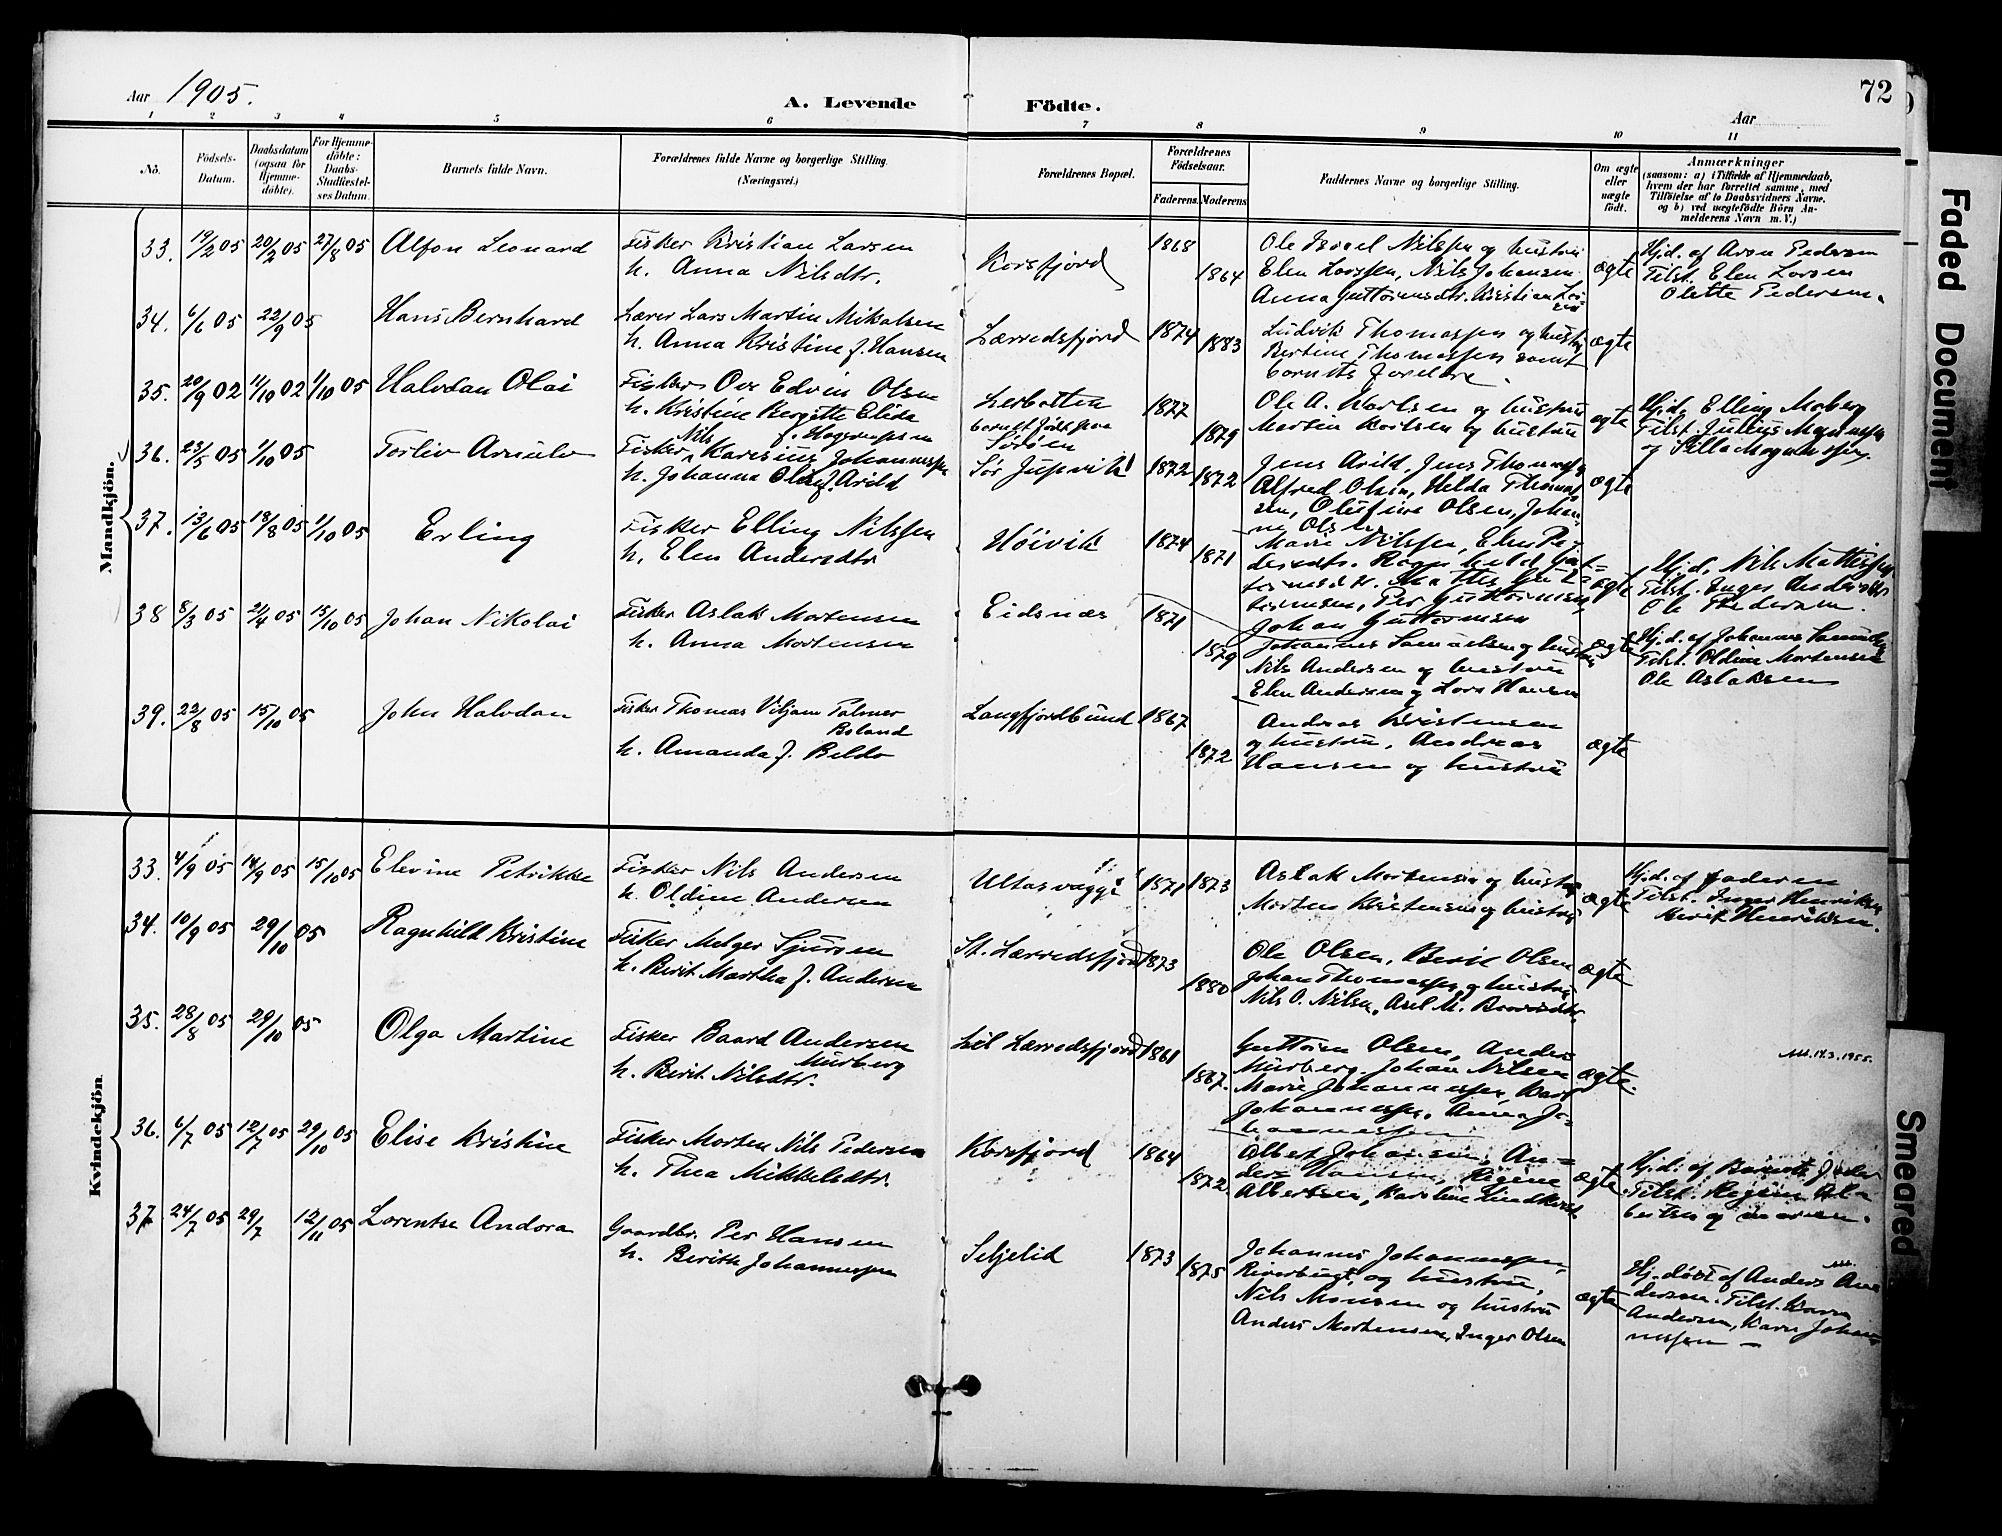 72
Aar 1905. A. Levende Födte. Aar
1 2 3 4 5 6 7 8 9 10 11
No. Födsels-Datum. Daabsdatum (ogsaa for Hjemmedöbte). For Hjemmedöbte: Daabs-Stadfæstelses Datum. Barnets fulde Navn. Forældrenes fulde Navne og borgerlige Stilling. (Næringsvei.) Forældrenes Bopæl. Forældrenes Födselsaar. Faderens. Moderens. Faddernes Navne og borgerlige Stilling. Om ægte eller uægte födt. Anmærkninger (saasom: a) i Tilfælde af Hjemmedaab, hvem der har forrettet samme, med Tilföielse af to Daabsvidners Navne, og b) ved uægtefödte Börn Anmelderens Navn m. V.)
Mandkjön.
33. 19/2 05 20/2 05 27/8 05 Alfon Leonard Fisker Kristian Larsen Korsfjord 1868 Ole Israel Nilssen og hustru Hjd. af Aron Pedersen
h. Anna Nilsdtr. 1864 Elen Larssen, Nils Johansen ægte Tilst. Elen Larsen
Anna Guttormsdtr. Kristian Larsen Olette Pedersen.
34. 6/6 05 22/9 05 Hans Bernhard Lærer Lars Martin Mikalsen Lærredsfjord 1874 Ludvik Thomassen og hustru
h. Anna Kristine f. Hansen 1883 Bertine Thomassen samt ægte
barnets forældre.
35. 20/9 02 11/10 02 1/10 05 Halvdan Olai Fisker Ove Edvin Olsen Lerbotten 1877 Ole A. Karlsen og hustru Hjd. Elling Moberg
h. Kristine Bergitte Elida barnet født paa Sørøen 1879 Martin Karlsen og hustru ægte Tilst. Julius Magnussen
f. Haagensen og Pella Magnussen.
36. 23/5 05 1/10 05 Torliv Arnulv Fisker Nils Karesius Johannessen Sør Jupvik 1872 Jens Arild, Jens Thomassen
h. Johanna Olsen f. Arild 1872 Alfred Olsen, Helda Thomassen, ægte
Olufine Olsen, Johanne Olsen
37. 13/6 05 18/8 05 1/10 05 Erling Fisker Elling Nilssen Høivik 1874 Marie Nilssen, Elen Pedersdtr. Hjd. Nils Mattissen
h. Elen Andersdtr. 1871 Ragnhild Guttormsdtr. Mattis Guttormsen, ægte Tilst. Inger Andersdtr.
Per Guttormsen, Johan Guttormsen Ole Pedersen.
38 8/3 05 21/4 05 15/10 05 Johan Nikolai Fisker Aslak Mortensen Eidsnæs 1871 Johannes Samuelsen og hustru Hjd. af Johannes Samuelsen
h. Anna Mortensen 1879 Nils Andersen og hustru ægte Tilst. Oldine Mortensen
Elen Andersen og Lars Hansen Ole Aslaksen
39. 22/8 05 15/10 05 John Halvdan Fisker Thomas Viljam Palmer Boland Langfjordbund 1867 Andreas Kristensen
h. Amanda f. Beldo 1872 og hustru, Andreas ægte
Hansen og hustru
Kvindekjön
33. 4/9 05 14/9 05 15/10 05 Elevine Petrikke Fisker Nils Andersen Ultasvaggi 1871 1873 Aslak Mortensen og hustru Hjd. af faderen
h. Oldine Andersen Morten Kristensen og hustru ægte Tilst. Inger Henriksen
Berit Henriksen.
34. 10/9 05 29/10 05 Ragnhild Kristine Fisker Melger Sjursen St. Lærredsfjord 1873 Ole Olsen, Berit Olsen
h. Berit Martha f. Andersen 1880 Johan Thomassen og hustru ægte
Nils O. Nilsen, Axel M.
35. 28/8 05 29/10 05 Olga Martine Fisker Baard Andersen Murberg Lil Lærredsfjord 1861 Guttorm Olsen, Anders 14.3.1955.
h. Berit Nilsdtr. 1867. Murberg, Johan Nilsen ægte.
Marie Johannessen, Karl
Johannessen, Anna Johannessen
36. 6/7 05 12/7 05 29/10 05 Elise Kristine Fisker Morten Nils Pedersen Korsfjord 1864 Albert Johansen, Anders Hjd. af Barnets fader
h. Thea Mikkelsdtr. 1872 Hansen, Regine ægte Tilst. Regine Albertsen
Albertsen, Karoline Lindkvist og moren.
37 24/7 05 29/7 12/11 05 Lorentse Andora Gaardbr. Per Hansen Seljelid 1873 Johannes Johannessen, Hj. døbt af Anders Andersen.
h. Berith Johannessen 1875 Riverbugt og hustru, Tilst. Karen
Nils Monsen og hustru ægte Andersen, Karn Johannessen
Anders Mortensen, Inger Olsen
Faded Document
Smeared